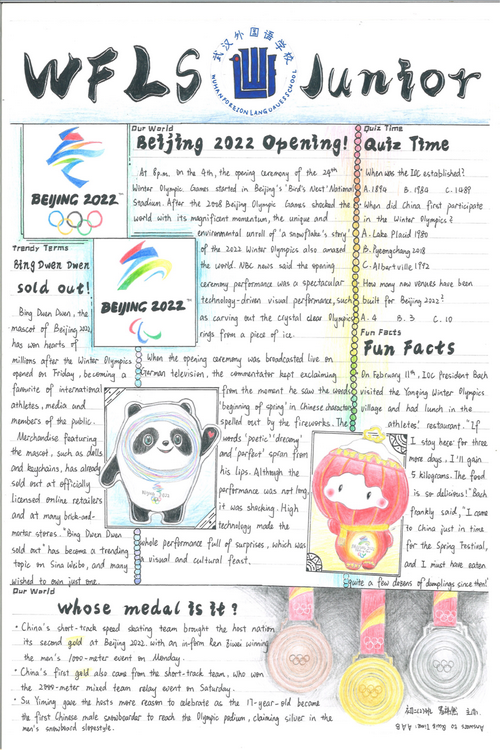 WFLS Junior
武汉外国语学校
WUHAN FOREIGN LANGUAGES SCHOOL
BEIJING 2022
Trendy Terms
Bing Dwen Dwen
sold out!
Bing Dwen Dwen, the
mascot of Beijing 2022,
has won hearts of
millions after the Winter Olympics
opened on Friday, becoming a
favourite of international
athletes, media and
members of the public.
Merchandise featuring
the mascot, such as dolls
and keychains, has already
sold out at officially
licensed online retailers
and at many brick-and-
mortar stores. "Bing Dwen Dwen
sold out" has become a trending
topic on Sina Weibo, and many
wished to own just one.
Our World
Beijing 2022 Opening!
At 8 p.m. on the 4th, the opening ceremony of the 24th
Winter Olympic Games started in Beijing's 'Bird's Nest' National
Stadium. After the 2008 Beijing Olympic Games shocked the
world with its magnificent momentum, the unique and
environmental unroll of 'a snowflake's story'
of the 2022 Winter Olympics also amazed
the world. NBC news said the opening
ceremony performance was a spectacular
technology-driven visual performance, such
as carving out the crystal clear Olympic
rings from a piece of ice.
BEIJING 2022
When the opening ceremony was broadcasted live on
German television, the commentator kept exclaiming
from the moment he saw the words
'beginning of spring' in Chinese characters
spelled out by the fireworks. The
words 'poetic' 'dreamy'
and 'perfect' spran from
his lips. Although the
performance was not long,
it was shocking. High
technology made the
whole performance full of surprises, which was
a visual and cultural feast.
Quiz Time
Quiz Time
When was the IOC established?
A. 1894 B. 1980 C. 1988
When did China first participate
in the Winter Olympics?
A. Lake Placid 1980
B. Pyeongchang 2018
C. Albertville 1992
How many new venues have been
built for Beijing 2022?
A. 4 B. 3 C. 10
Fun Facts
Fun Facts
On February 11th, IOC President Bach
visited the Yanqing Winter Olympics
village and had lunch in the
athletes' restaurant. "If
I stay here for three
more days, I'll gain
5 kilograms. The food
is so delicious!" Bach
frankly said, "I came
to China just in time
for the Spring Festival,
and I must have eaten
quite a few dozens of dumplings since then!"
Our World
whose medal is it?
• China's short-track speed skating team brought the host nation
its second gold at Beijing 2022, with an in-form Ren Ziwei winning
the men's 1000-meter event on Monday.
• China's first gold also came from the short-track team, who won
the 2000-meter mixed team relay event on Saturday.
• Su Yiming gave the hosts more reason to celebrate as the 17-year-old became
the first Chinese male snowboarder to reach the Olympic podium, claiming silver in the
men's snowboard slopestyle.
Answers to Quiz Time: A A B